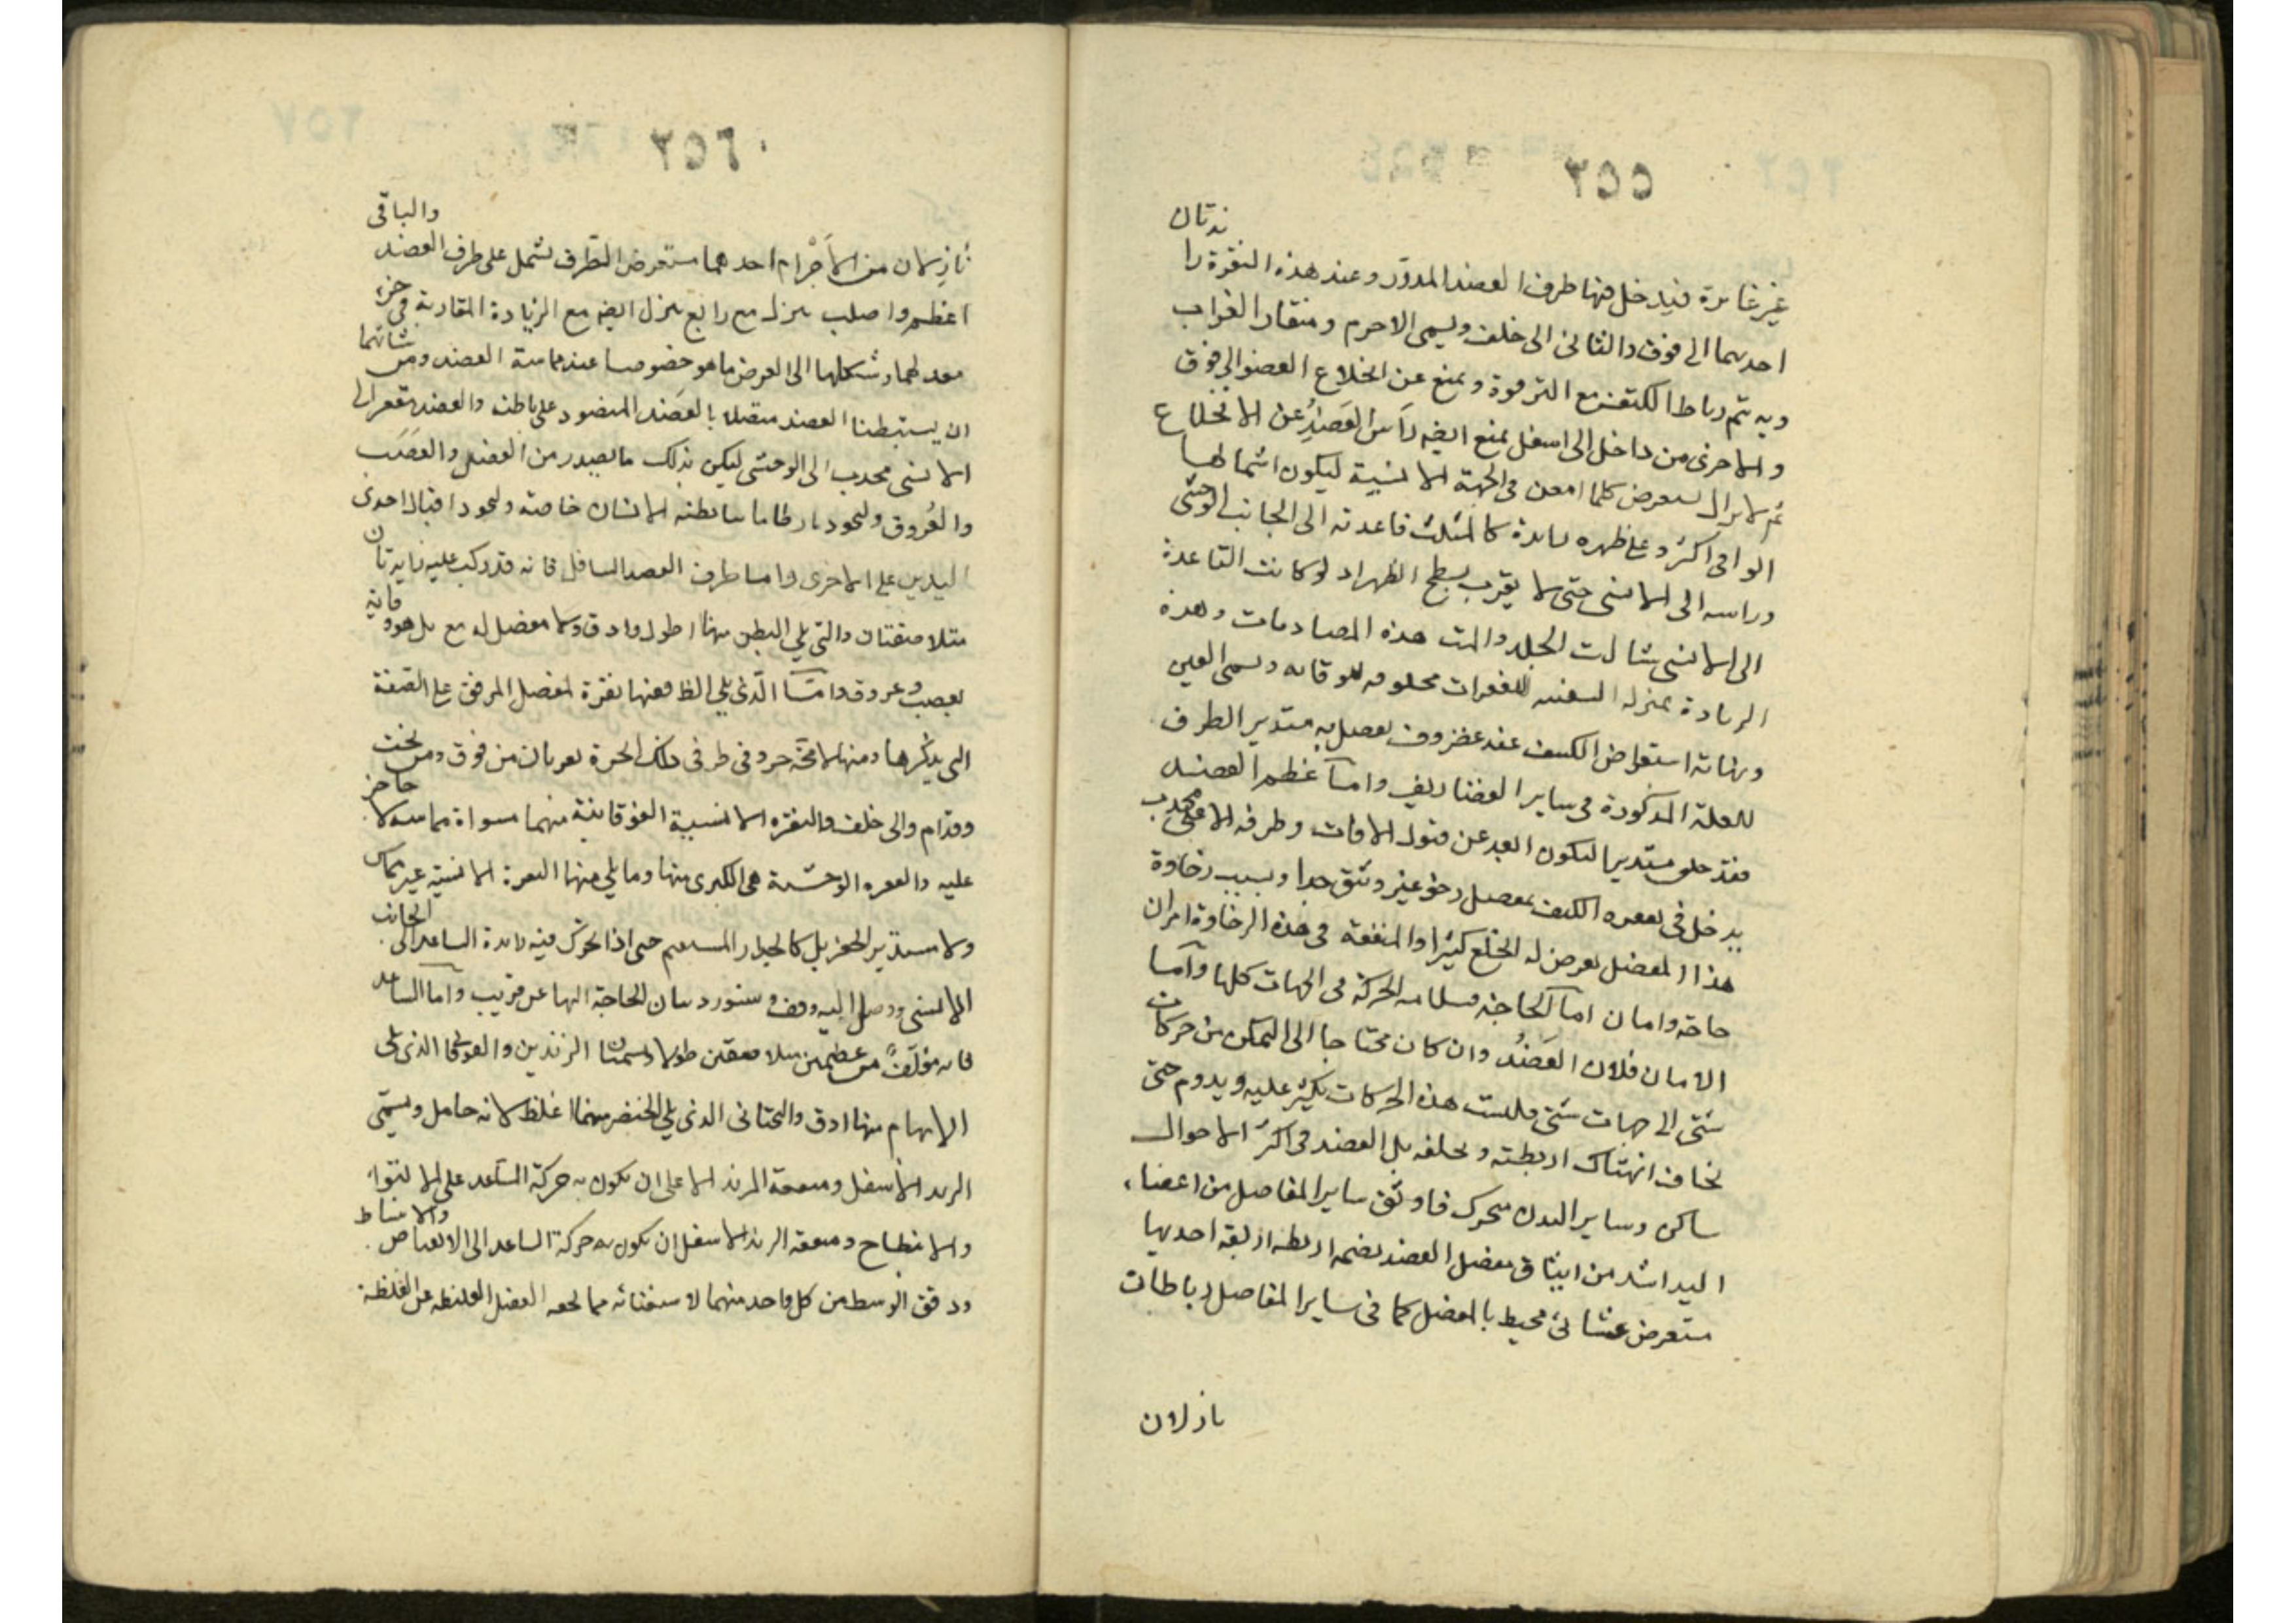 ٢٥٥
غير غائرة فيدخل فيها طرف العضد المدور وعند هذه النقرة زا
ئدتان
احديهما الى فوق والثانى الى خلف ويسمى الاخرم ومنقار الغراب
وبه يتم رباط الكتف مع الترقوة ويمنع عن انخلاع العضو الى فوق
والاخرى من داخل الى اسفل يمنع ايضه رأس العضد عن الانخلاع
ثم لايزال يستعرض كلما امعن فى الجهة الانسية ليكون اشتمالها
الواقى اكثر وعلى ظهره زايدة كالمثلث قاعدته الى الجانب الوحشى
وراسه الى الانسى حتى لا يقرب بسطح الظهر اذ لو كانت القاعدة
الى الانسى شالت الجلد والمت هذه المصادمات وهذه
الزيادة بمنزلة السنسنة للفقرات مخلوقه للوقايه ويسمى العين
ونهاية استعراض الكتف عند غضروف يتصل به مستدير الطرف
للعلة المذكورة فى ساير الغضاريف واما عظم العضد
فقد خلق مستديرا ليكون ابعد عن قبول الافات وطرفه الاعلى محدب
يدخل فى نقره الكتف بمفصل رخو غير وثيق جدا وبسبب رخاوة
هذا المفصل يعرض له الخلع كثيرا والمنفعة فى هذه الرخاوة امران
حاجة وامان اما الحاجة فسلامه الحركة فى الجهات كلها واما
الامان فلان العضد وان كان محتاجا الى التمكن من حركات
شتى الى جهات شتى فليست هذه الحركات تكثر عليه ويدوم حتى
يخاف انهتاك اربطته وتخلعه بل العضد فى اكثر الاحوال
ساكن وساير البدن متحرك فاوثق ساير المفاصل من اعضاء
اليد اشد من ايثاق مفصل العضد يضمه اربطه اربعه احديها
مستعرض غشائى محيط بالمفصل كما فى ساير المفاصل ورباطات
نازلان
٢٥٦
نازلان من الاخرام احدهما مستعرض الطرف يشمل على طرف العضد
والباقى
اعظم واصلب ينزل مع رابع ينزل ايضه مع الزيادة المقاربة فى حز
معد لهما وشكلها الى العرض ما هو خصوصا عند مماسة العضد ومن
شانهما
ان يستبطنا العضد متصلا بالعضد المنضود على باطن والعضد مقعر الى
الانسى محدب الى الوحشى ليكن بذلك ما يصدر من العضل والعصب
والعروق وليجود تابط ما يتابطنه الانسان خاصة وليجود اقبال احدى
اليدين على الاخرى واما طرف العضد السافل فانه قد ركب عليه زايدتان
متلاصقتان والتى يلى البطن منهما اطول وادق ولا مفصل له مع بل هو
وقاية
لعصب وعروق واما الذى يلى الظ فعنها نقرة لمفصل المرفق على الصفة
التى يذكرها ومنها لا محة حز وفى طرفى ذلك الحزة نقرتان من فوق ومن تحت
وقدام والى خلف والنقره الانسية الفوقانية منهما مسواة مماسه لا
حاجز
عليه والنقره الوحشية هى الكبرى منها وما يلى منها النقرة الانسية غير مملس
ولا مستدير الحفز بل كالجدار المستقيم حتى اذا تحرك فيه زايدة الساعد الى
الجانب
الانسى ووصل اليه وقف وسنورد بيان الحاجة اليها عن قريب واما الساعد
فانه مؤلف من عظمين متلاصقين طولا ويسميان الزندين والفوقانى الذى يلى
الابهام منهما ادق والتحتانى الذى يلى الخنصر منهما اغلظ لانه حامل ويسمى
الزند الاسفل ومنفعة الزند الاعلى ان يكون به حركة الساعد على الالتواء
والانبطاح ومنفعه الزند الاسفل ان يكون به حركة الساعد الى الانقباض
والانبساط
ودقق الوسط من كل واحد منهما لاستغنائه مما يحفه العضل الغليظه عن الغلظة